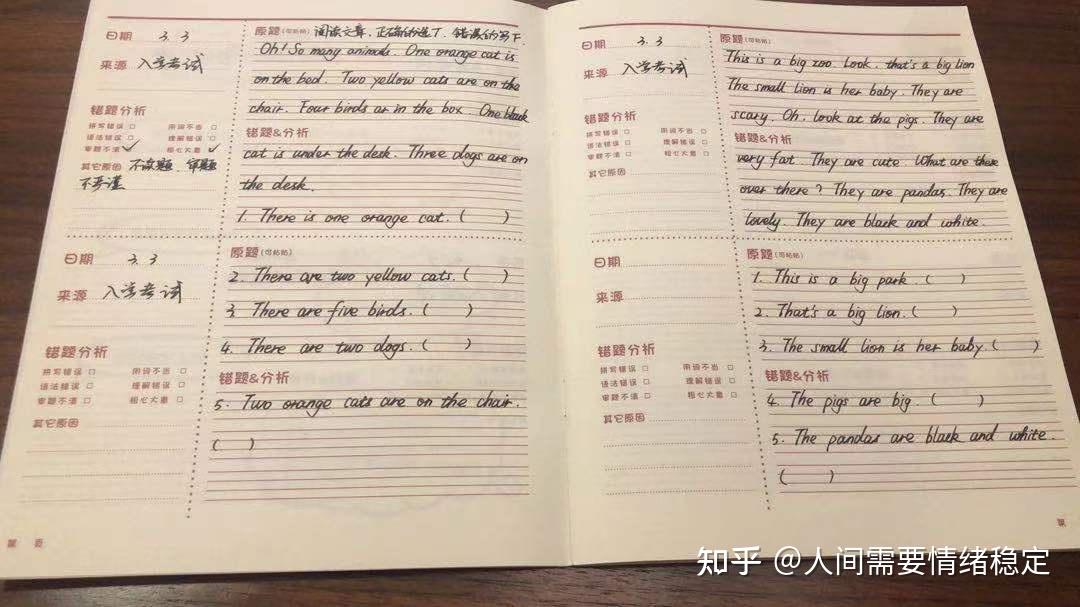 日期 3.3
来源 入学考试
错题分析
拼写错误 □ 用词不当 □
语法错误 □ 理解错误 □
审题不清 ✓ 粗心大意 ✓
其它原因 不读题,审题
不严谨
原题(可粘贴) 阅读文章,正确的选T,错误的写F.
Oh! So many animals. One orange cat is
on the bed. Two yellow cats are on the
chair. Four birds ar in the box. One black
错题&分析
cat is under the desk. Three dogs are on
the desk.
1. There is one orange cat. ( )
日期 3.3
来源 入学考试
错题分析
拼写错误 □ 用词不当 □
语法错误 □ 理解错误 □
审题不清 □ 粗心大意 □
其它原因
原题(可粘贴)
2. There are two yellow cats. ( )
3. There are five birds. ( )
4. There are two dogs. ( )
错题&分析
5. Two orange cats are on the chair.
( )
第 页
日期 3.3
来源 入学考试
错题分析
拼写错误 □ 用词不当 □
语法错误 □ 理解错误 □
审题不清 □ 粗心大意 □
其它原因
原题(可粘贴)
This is a big zoo. Look, that's a big lion
The small lion is her baby. They are
scary. Oh, look at the pigs. They are
错题&分析
very fat. They are cute. What are there
over there? They are pandas. They are
lovely. They are black and white.
日期
来源
错题分析
拼写错误 □ 用词不当 □
语法错误 □ 理解错误 □
审题不清 □ 粗心大意 □
其它原因
原题(可粘贴)
1. This is a big park. ( )
2. That's a big lion. ( )
3. The small lion is her baby. ( )
错题&分析
4. The pigs are big. ( )
5. The pandas are black and white.
( )
第
知乎 @人间需要情绪稳定